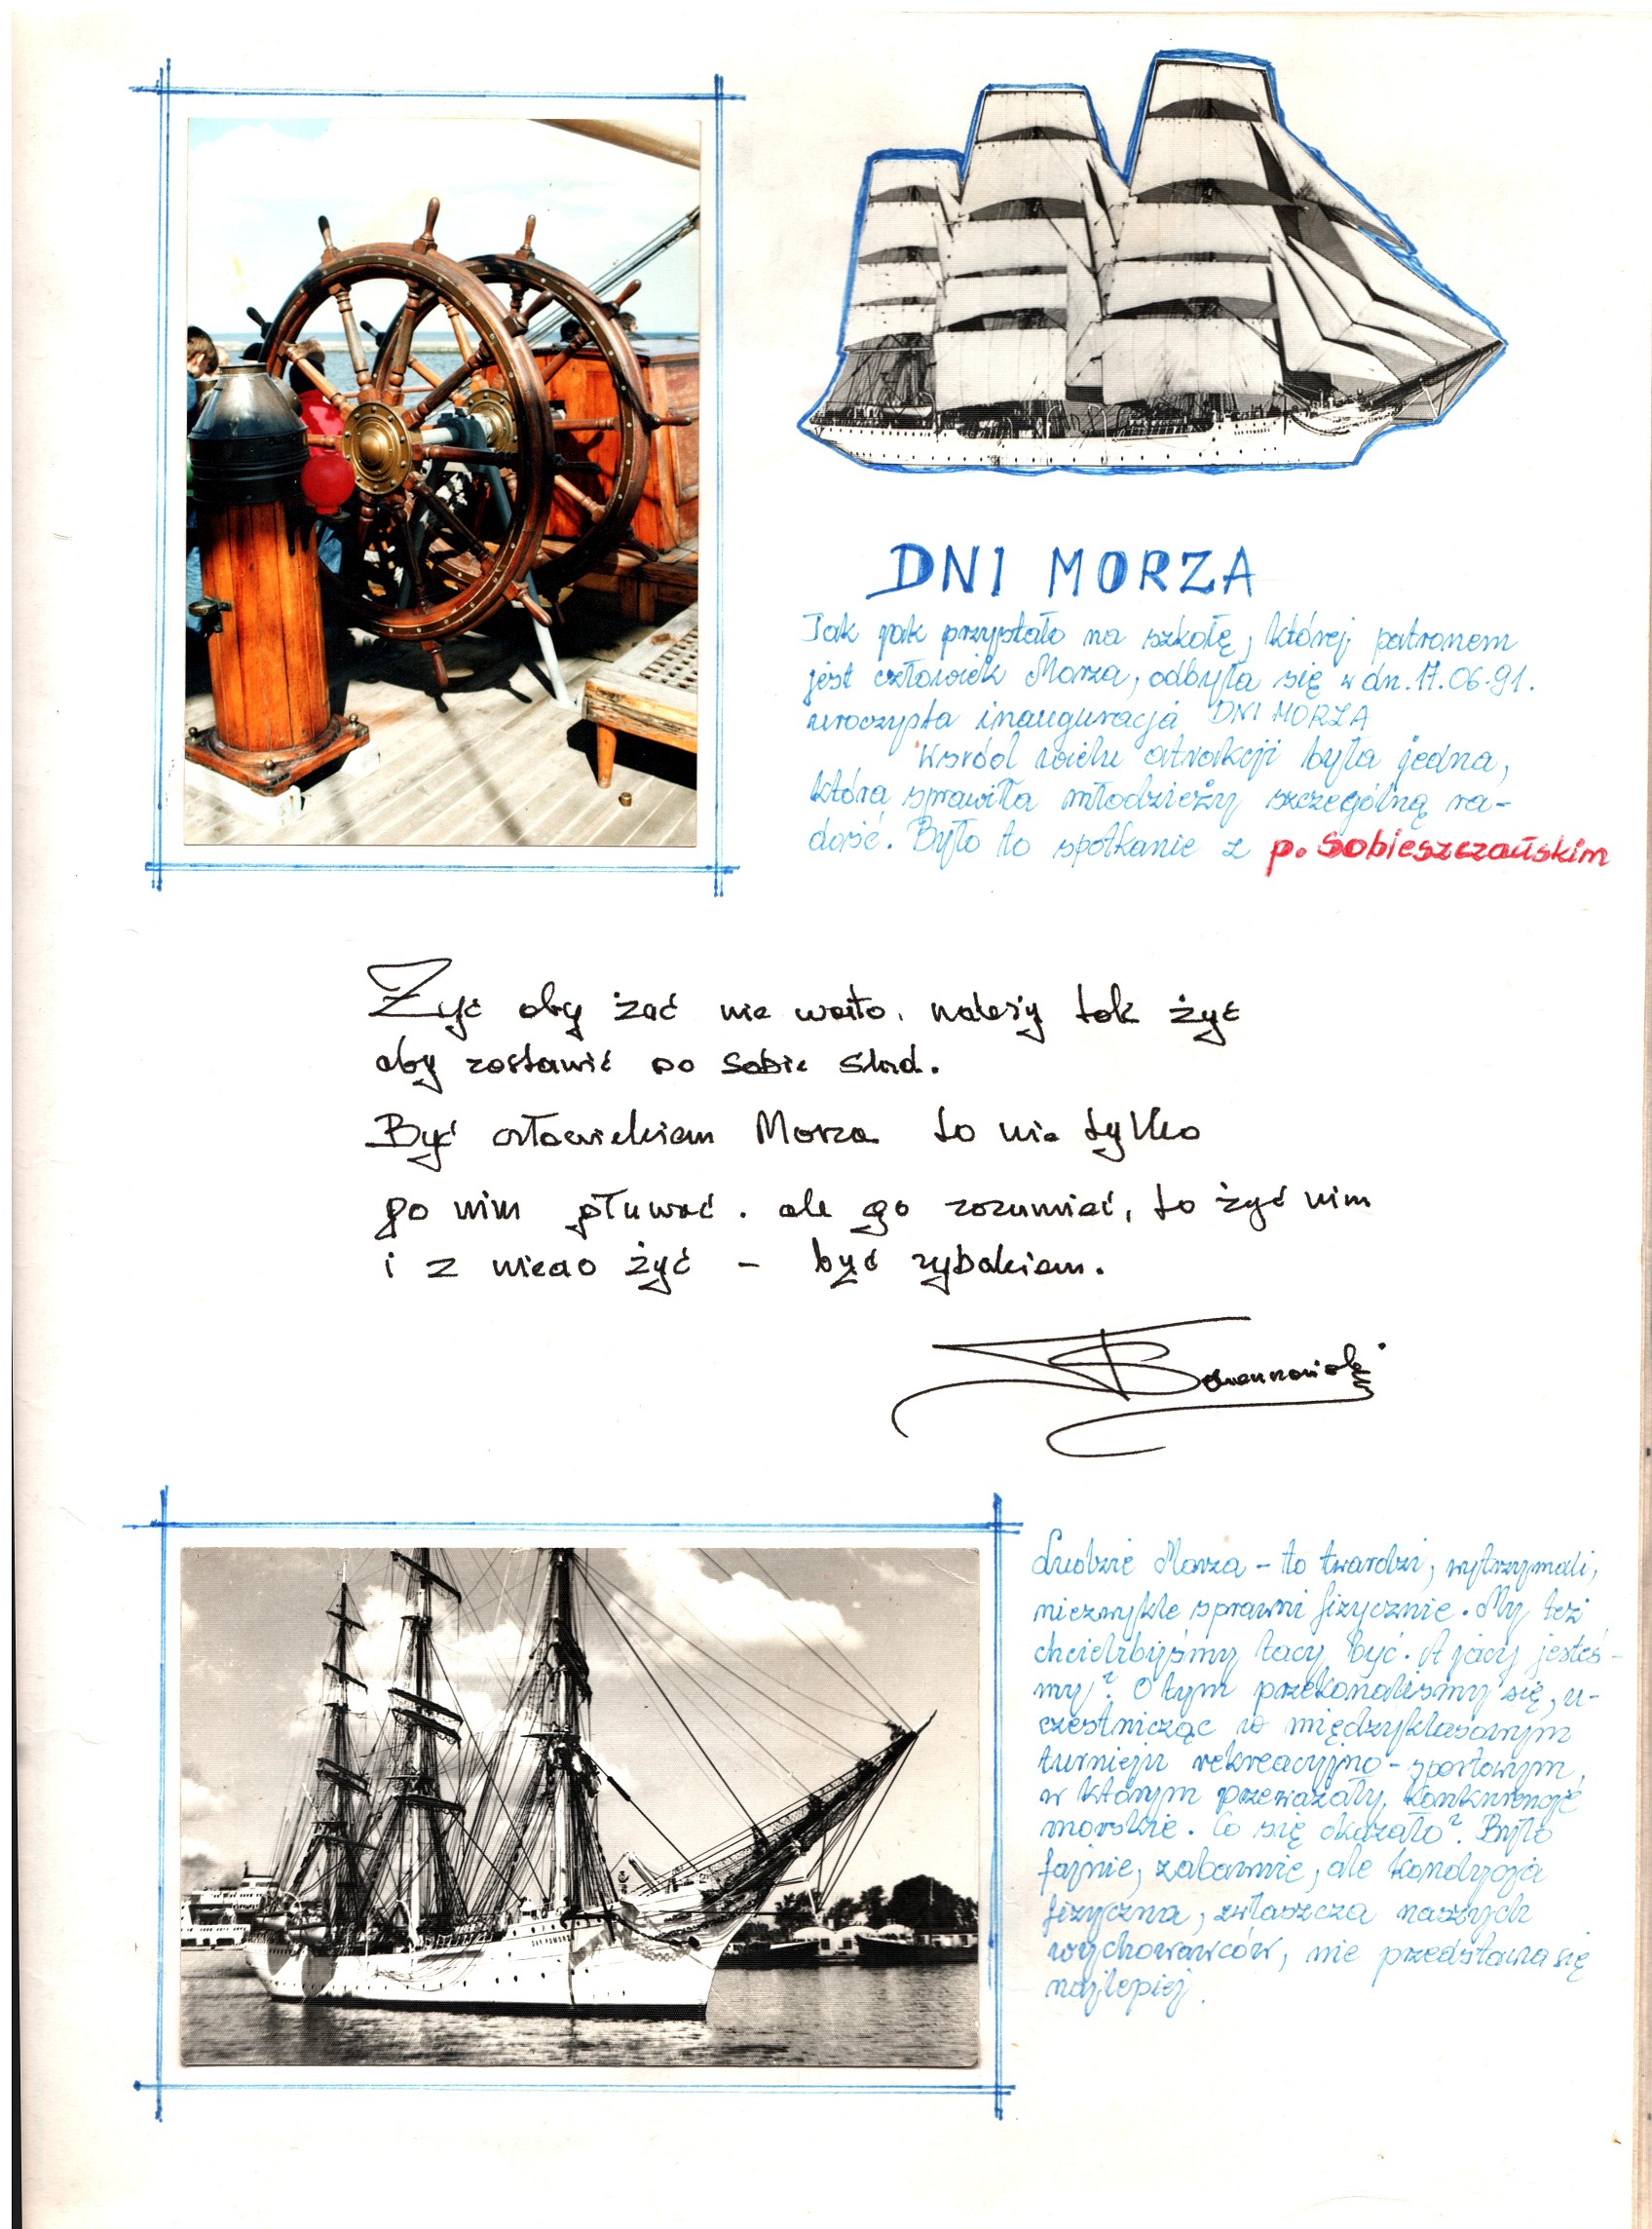 DNI MORZA
Jak jak przystało na szkołę, której patronem
jest człowiek Morza, odbyła się w dn. 17.06.91.
uroczysta inauguracja DNI MORZA
Wśród wielu atrakcji była jedna,
która sprawiła młodzieży szczególną ra-
dość. Było to spotkanie z p. Sobieszczańskim
Żyć aby żyć nie warto. należy tak żyć
aby zostawić po sobie ślad.
Być człowiekiem Morza to nie tylko
po nim pływać. ale go rozumieć, to żyć nim
i z niego żyć - być rybakiem.
Ludzie Morza - to twardzi, wytrzymali,
niezwykle sprawni fizycznie. My też
chcielibyśmy tacy być. A jacy jesteś-
my? O tym przekonaliśmy się, u-
czestnicząc w międzyklasowym
turnieju rekreacyjno-sportowym,
w którym przeważały konkurencje
morskie. Co się okazało? Było
fajnie, zabawnie, ale kondycja
fizyczna, zwłaszcza naszych
wychowawców, nie przedstawia się
najlepiej.
DAR POMORZA